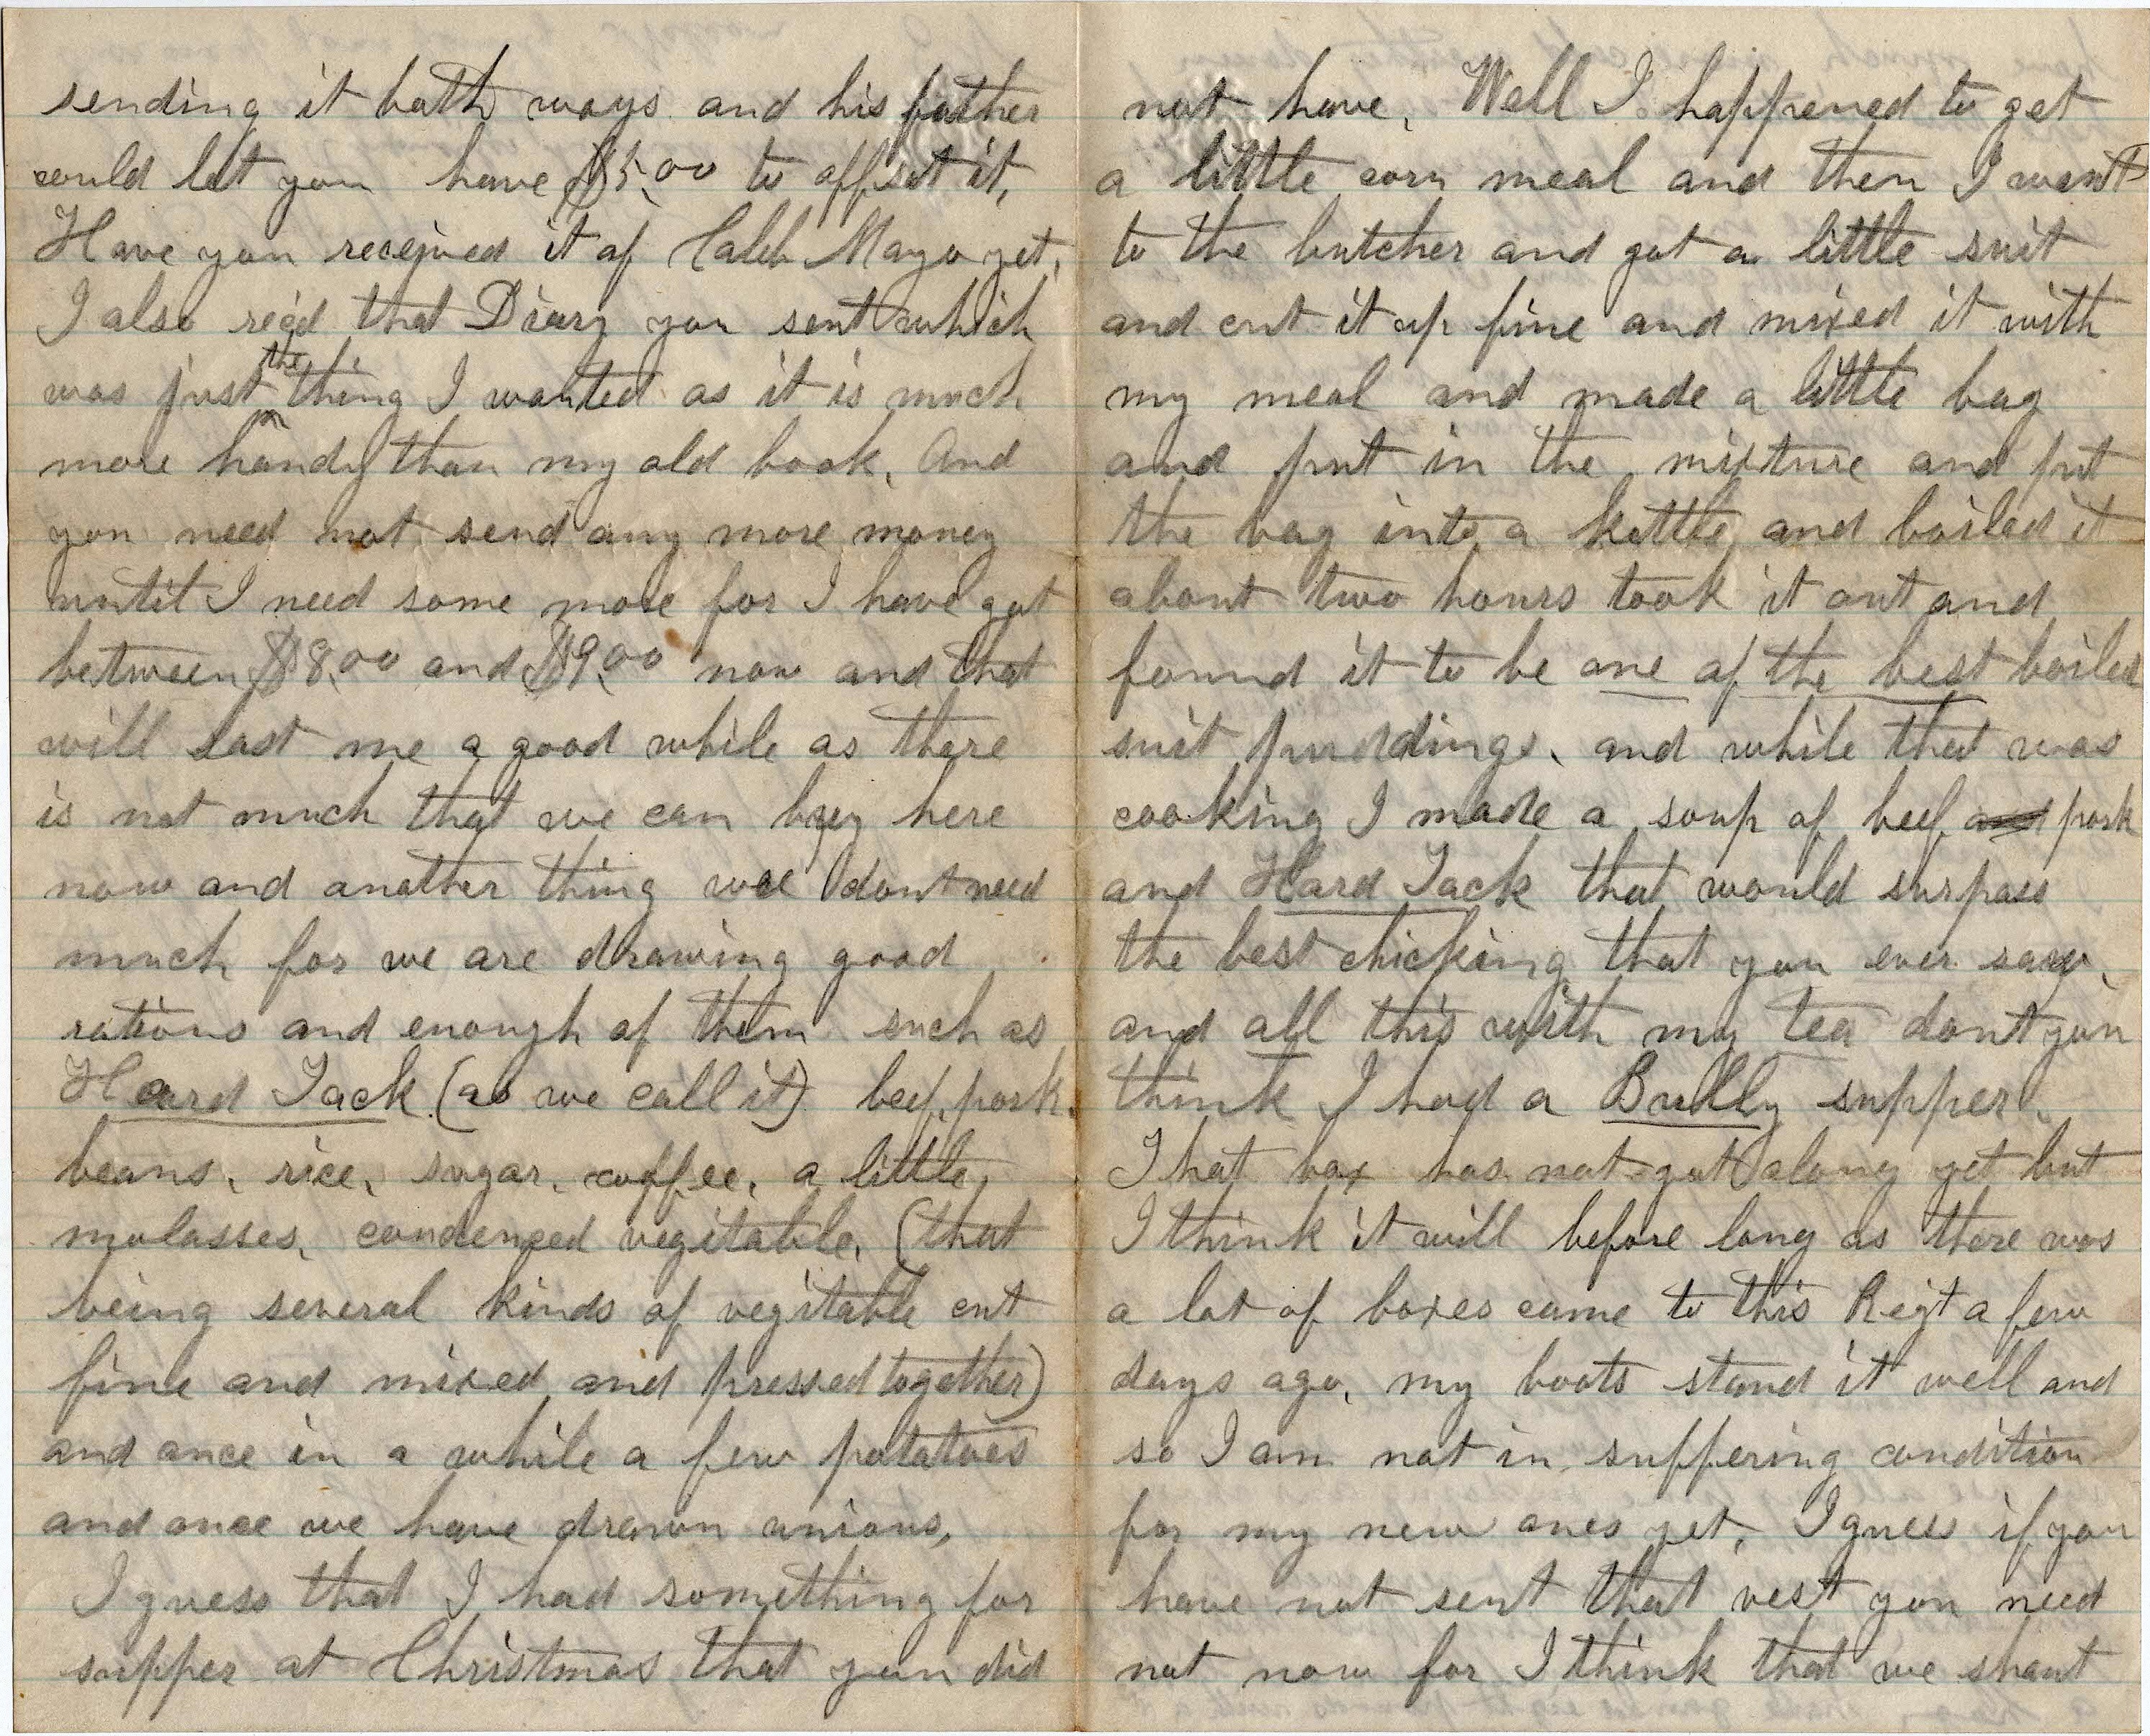 sending it both ways and his father
could let you have $5.00 to offset it,
Have you received it of Caleb Mayo yet,
I also rec'd that Diary you sent which
was just the thing I wanted as it is much
more handy than my old book. And
you need not send any more money
until I need some more for I have got
between $8.00 and $9.00 now and that
will last me a good while as there
is not much that we can buy here
now and another thing we dont need
much for we are drawing good
rations and enough of them such as
Hard Tack (as we call it) beef, pork.
beans, rice, sugar, coffee, a little
molasses, condenced vegitable, (that
being several kinds of vegitable cut
fine and mixed and pressed together)
and once in a while a few potatoes
and once we have drawn unions,
I guess that I had something for
supper at Christmas that you did
not have. Well I happened to get
a little corn meal and then I went
to the butcher and got a little suit
and cut it up fine and mixed it with
my meal and made a little bag
and put in the mixture and put
the bag into a kettle and boiled it
about two hours took it out and
found it to be one of the best boiled
suit puddings, and while that was
cooking I made a soup of beef and pork
and Hard Tack that would surpass
the best chicking that you ever saw,
and all this with my tea dont you
think I had a Bully supper.
That box has not got along yet but
I think it will before long as there was
a lot of boxes came to this Regt a few
days ago, my boots stand it well and
so I am not in suffering condition
for my new ones yet, I guess if you
have not sent that vest you need
not now for I think that we shant